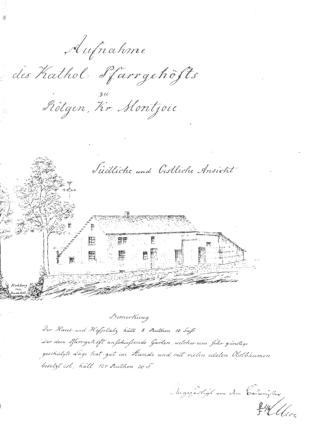 Aufnahme
des Kathol. Pfarrgehöfts
zu
Rötgen, Kr. Montjoie
Südliche und Oestliche Ansicht
Bemerkung
Der Haus und Hofplatz hält 8 Ruthen 10 Fuß
Der dem Pfarrgehöft anschießende Garten welcher eine sehr günstige
geschützte Lage hat, gut im Stande und mit vielen edelen Obstbäumen
besetzt ist, hält 127 Ruthen 20 F.
Angefertigt von dem Baumeister